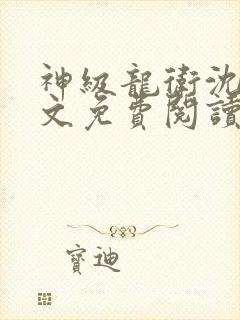 神級龍衛沈
文免費閱讀
寶迪